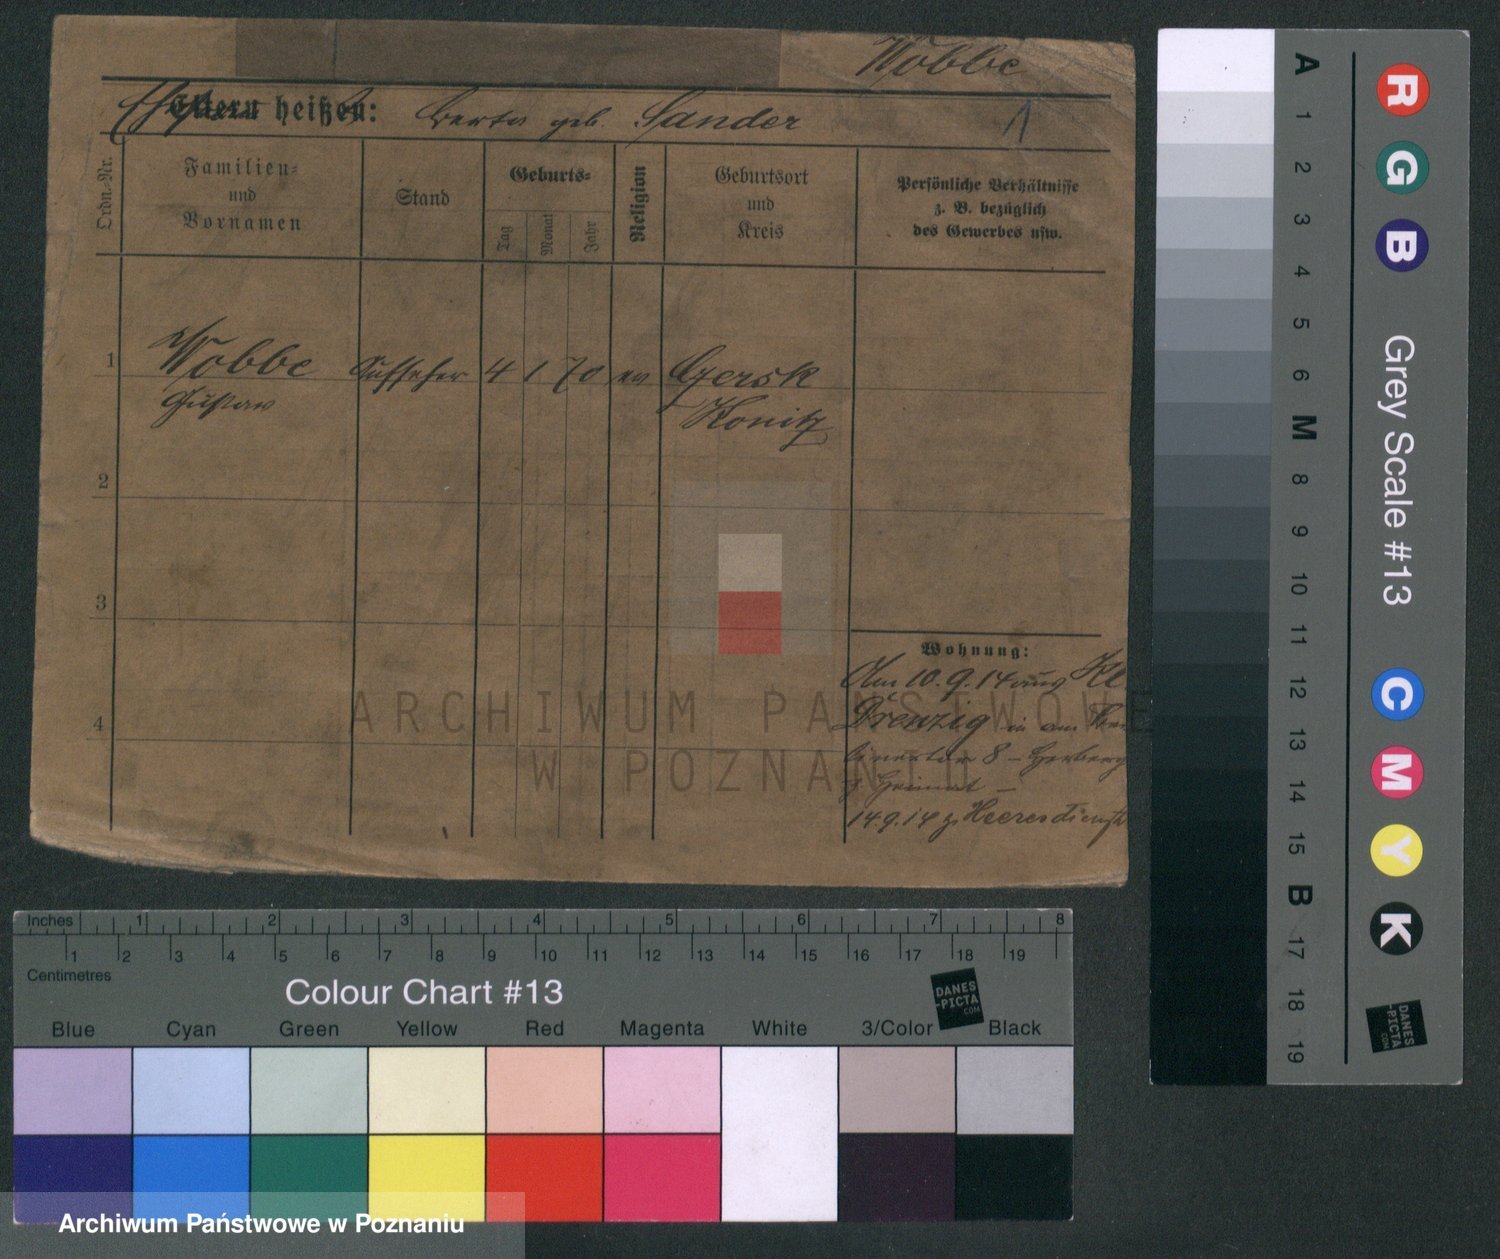 Wobbe
Eltern heißen: Berta geb. Sander
1
Ordn.-Nr.
Familien-
und
Vornamen
Stand
Geburts-
Tag
Monat
Jahr
Religion
Geburtsort
und
Kreis
Persönliche Verhältnisse
z. B. bezüglich
des Gewerbes usw.
1
Wobbe 4 1 70 ev Czersk
Gustav Konitz
2
3
4
Wohnung:
Am 10.9.14 aus Kl
Drenzig in am
8 - Herberge
z Heimat -
14.9.14 z. Heeresdienst
ARCHIWUM PAŃSTWOWE
W POZNANIU
Inches 1 2 3 4 5 6 7 8
1 2 3 4 5 6 7 8 9 10 11 12 13 14 15 16 17 18 19
Centimetres
Colour Chart #13
DANES
-PICTA
.COM
Blue Cyan Green Yellow Red Magenta White 3/Color Black
Archiwum Państwowe w Poznaniu
A 1 2 3 4 5 6 M 8 9 10 11 12 13 14 15 B 17 18 19
R G B
Grey Scale #13
C M Y K
DANES
-PICTA
.COM